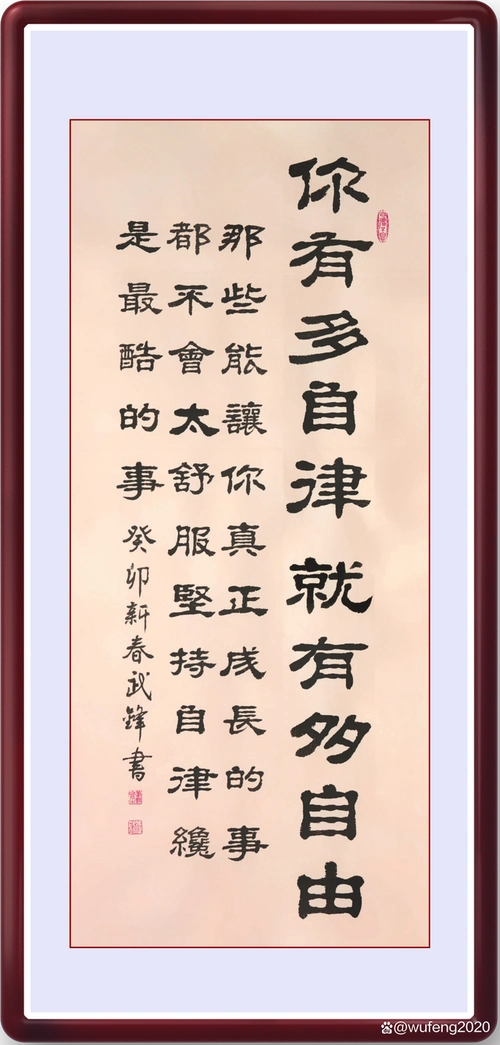 你有多自律就有多自由
那些能讓你真正成長的事
都不會太舒服堅持自律纔
是最酷的事
癸卯新春武鋒書
@wufeng2020